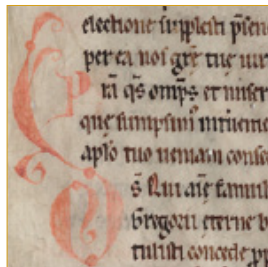 electione suppleisti p̄sen
per ea nos grē tue uir
P rā q̄s omp̄s et miser
que sumpsim᷒ interue
aplō tuo ueniam conse
D s̄ Qui aīe famul
Gregorii eterne b
tulisti concede pp